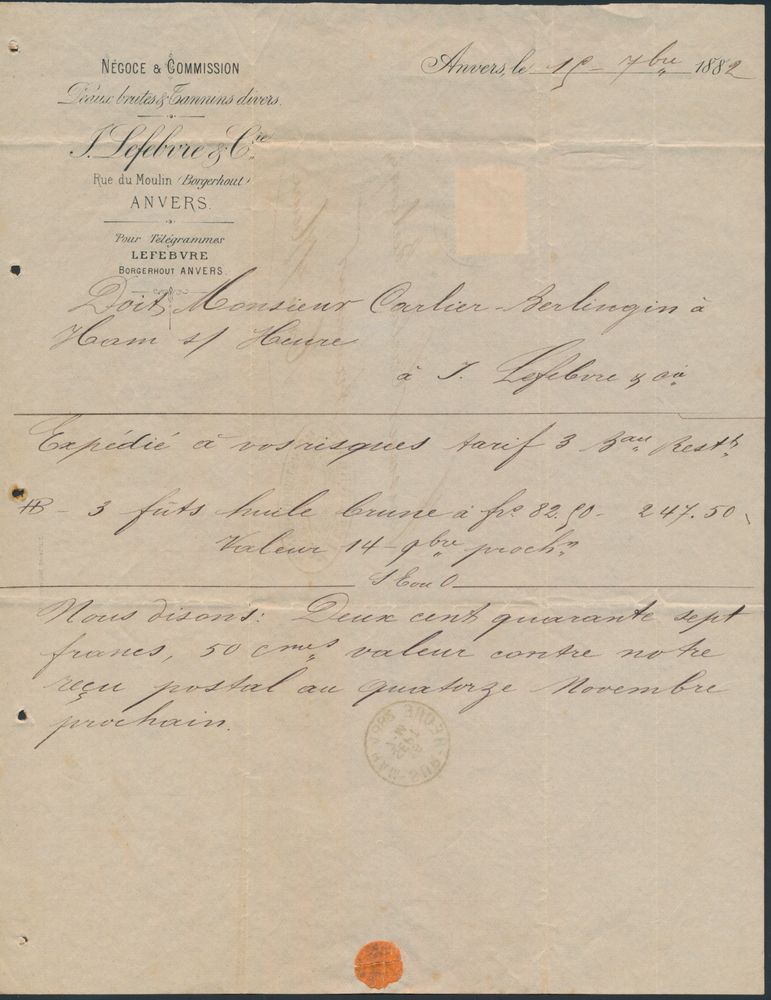 NÉGOCE & COMMISSION
Peaux brutes & Tannins divers.
J. Lefebvre & Cie
Rue du Moulin (Borgerhout)
ANVERS.
Pour Télégrammes
LEFEBVRE
BORGERHOUT ANVERS.
Anvers, le 15 - 7bre 1882
Doit Monsieur Carlier-Berlingin à
Ham s/ Heure
à J. Lefebvre & cie
Expédié à vos risques tarif 3
3 fûts huile brune à frs 82.50 - 247.50
Valeur 14 - 9bre prochn
S E ou O
Nous disons: Deux cent quarante sept
francs, 50 cmes valeur contre notre
reçu postal au quatorze Novembre
prochain.
HAM-SUR-HEURE